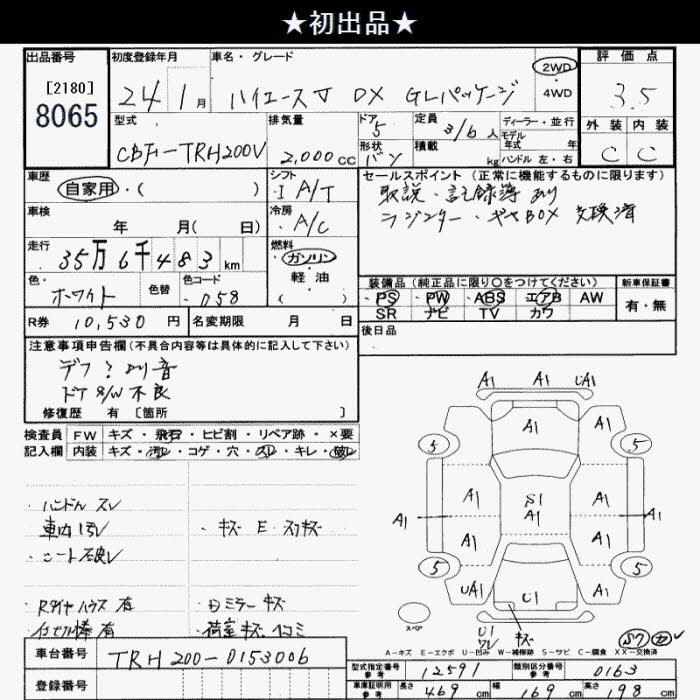 ★初出品★
出品番号
[2180]
8065
初度登録年月
24年 1月
車名・グレード
ハイエースV DX GLパッケージ
2WD
4WD
評価点
3.5
外装 内装
C C
型式
CBF-TRH200V
排気量
2,000cc
ドア 5
形状 バン
定員 3/6人
積載 kg
ディーラー・並行
モデル
年式 年
ハンドル 左・右
車歴
自家用・( )
車検
年 月( 日)
走行
35万6千483km
色・
ホワイト
色替
色コード
058
R券 10,530円
名変期限 月 日
シフト
I A/T
冷房
A/C
燃料
ガソリン
軽・油
( )
セールスポイント(正常に機能するものに限ります)
取説・記録簿あり
ラジエター・ギヤBOX 交換済
装備品(純正品に限り○をつけてください)
PS・PW・ABS・エアB・AW
SR ナビ TV カワ
新車保証書
有・無
後日品
注意事項申告欄(不具合内容等は具体的に記入して下さい)
デフ?より音
ドア S/W 不良
修復歴 有 [箇所 ]
検査員 FW キズ・飛石・ヒビ割・リペア跡・×要
記入欄 内装 キズ・汚レ・コゲ・穴・スレ・キレ・破レ
・ハンドル スレ
車内汚レ
・キズ E・スリキズ
・シート汚レ
・Rタイヤハウス 有
・ミラー キズ
有
・荷室キズ・ヘコミ
A1 A1 UA1
A1 A1 A1
5 5
A1 S1 A1
A1 A1 A1
A1 A1
5 5
UA1 U1 A1
U1
キズ
スペア
A-キズ E-エクボ U-凹み W-補修跡 S-サビ C-腐食 XX-交換済
車台番号 TRH200-0153006
登録番号
型式指定番号 参考 12591
類別区分番号 参考 0163
車庫証明用 参考 長さ 469cm 幅 169cm 高さ 198cm